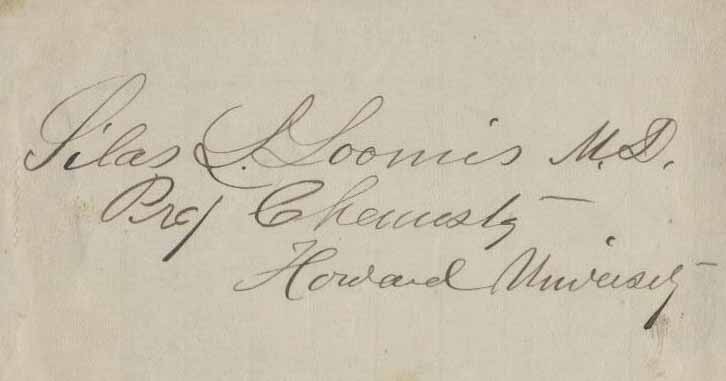 Silas L. Loomis M.D.
Prof Chemistry
Howard University